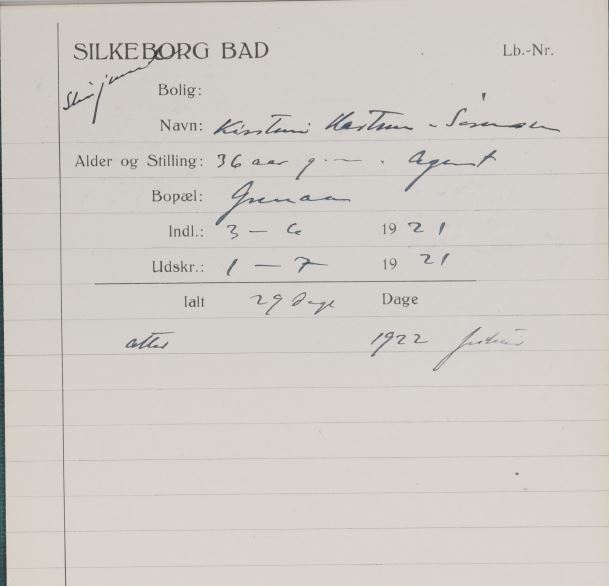 SILKEBORG BAD Lb.-Nr.
Bolig:
Navn: Kirstine - Sørensen
Alder og Stilling: 36 aar g. — . Agent
Bopæl: Grenaa
Indl.: 3 - 6 1921
Udskr.: 1 - 7 1921
Ialt 29 Dage Dage
atter 1922